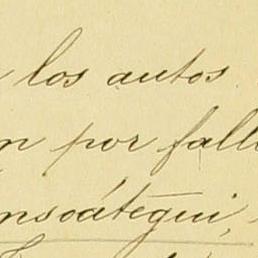 los autos
por fall
nsoátegui,